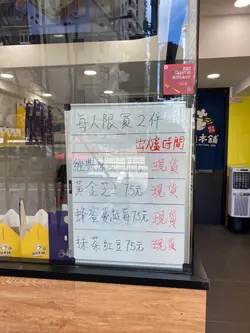 每人限買2件
出爐時間
現貨
黃金芝士75元 現貨
蜂蜜蔓越莓75元 現貨
抹茶紅豆75元 現貨
本舖